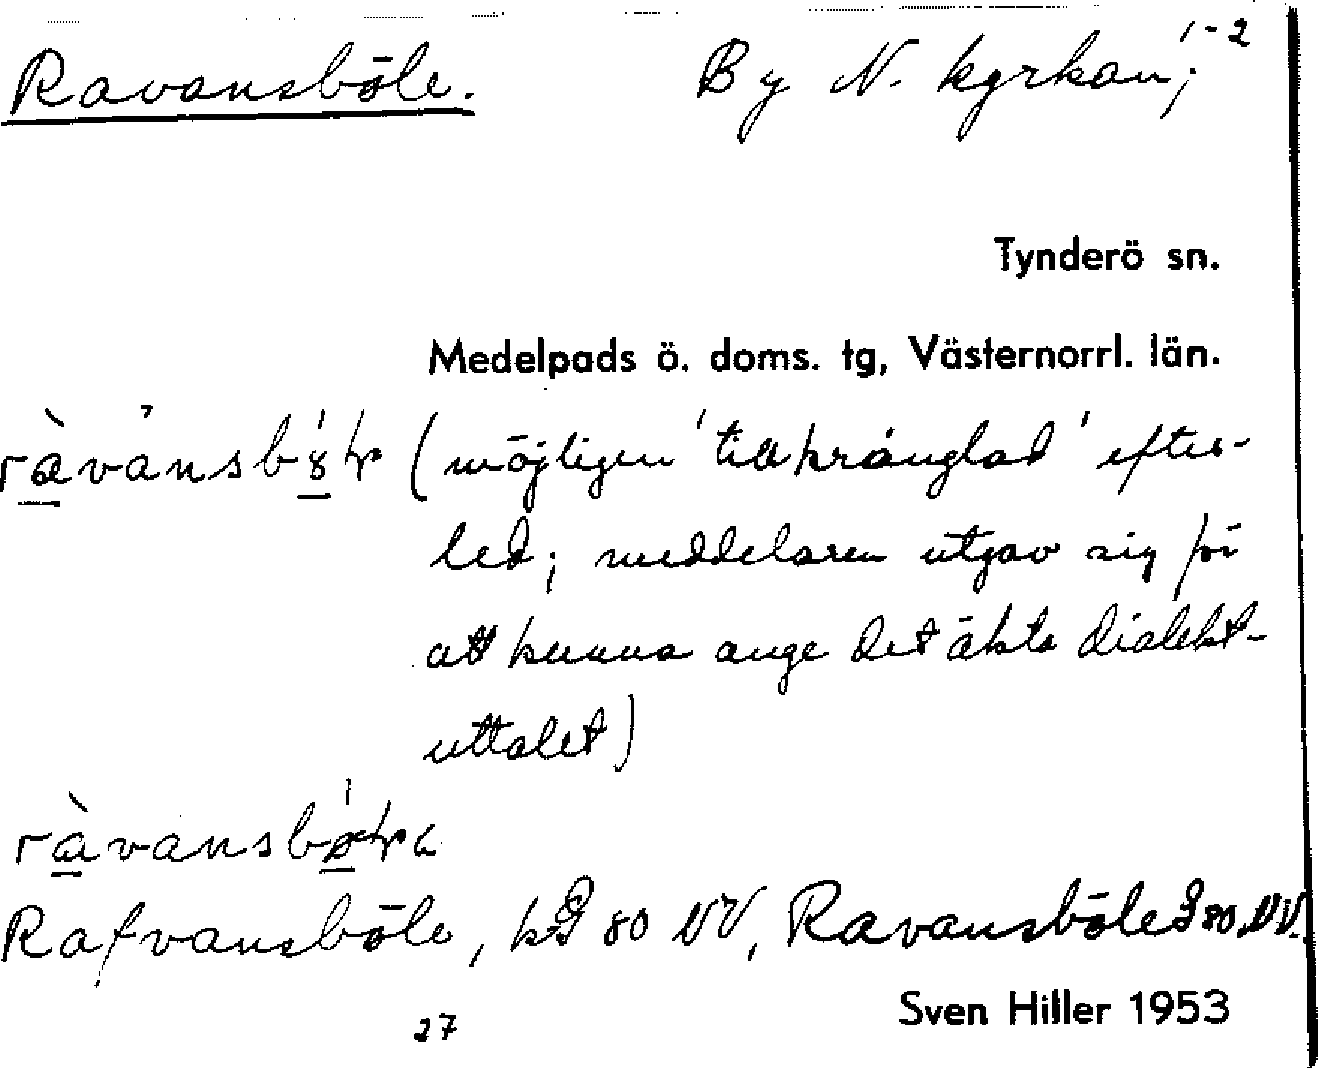 Ravansböle. By N. kyrkan; 1-2
Tynderö sn.
Medelpads ö. doms. tg, Västernorrl. län.
(möjligen 'tillkrånglad' efter-
led; meddelaren utgav sig för
att kunna ange det äkta dialekt-
uttalet)
Rafvansböle, 80 NV, Ravansböle 80 NV.
27 Sven Hiller 1953